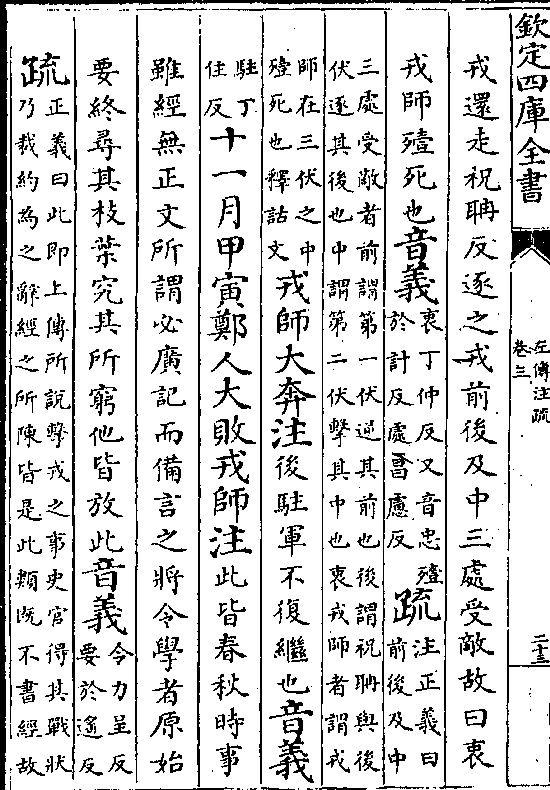 欽定四庫全書
左傳注疏
卷三
二十三
戎還走祝聃反逐之戎前後及中三處受敵故曰衷
戎師殪死也音義衷丁仲反又音忠殪
於計反處昌慮反疏注正義曰
前後及中
三處受敵者前謂第一伏逆其前也後謂祝聃與後
伏逐其後也中謂第二伏擊其中也衷戎師者謂戎
師在三伏之中
殪死也釋詁文戎師大奔注後駐軍不復繼也音義
駐丁
住反十一月甲寅鄭人大敗戎師注此皆春秋時事
雖經無正文所謂必廣記而備言之將令學者原始
要終尋其枝葉究其所窮他皆放此音義令力呈反
要於遙反
疏正義曰此即上傳所說擊戎之事史官得其戰狀
乃裁約為之辭經之所陳皆是此類既不書經故